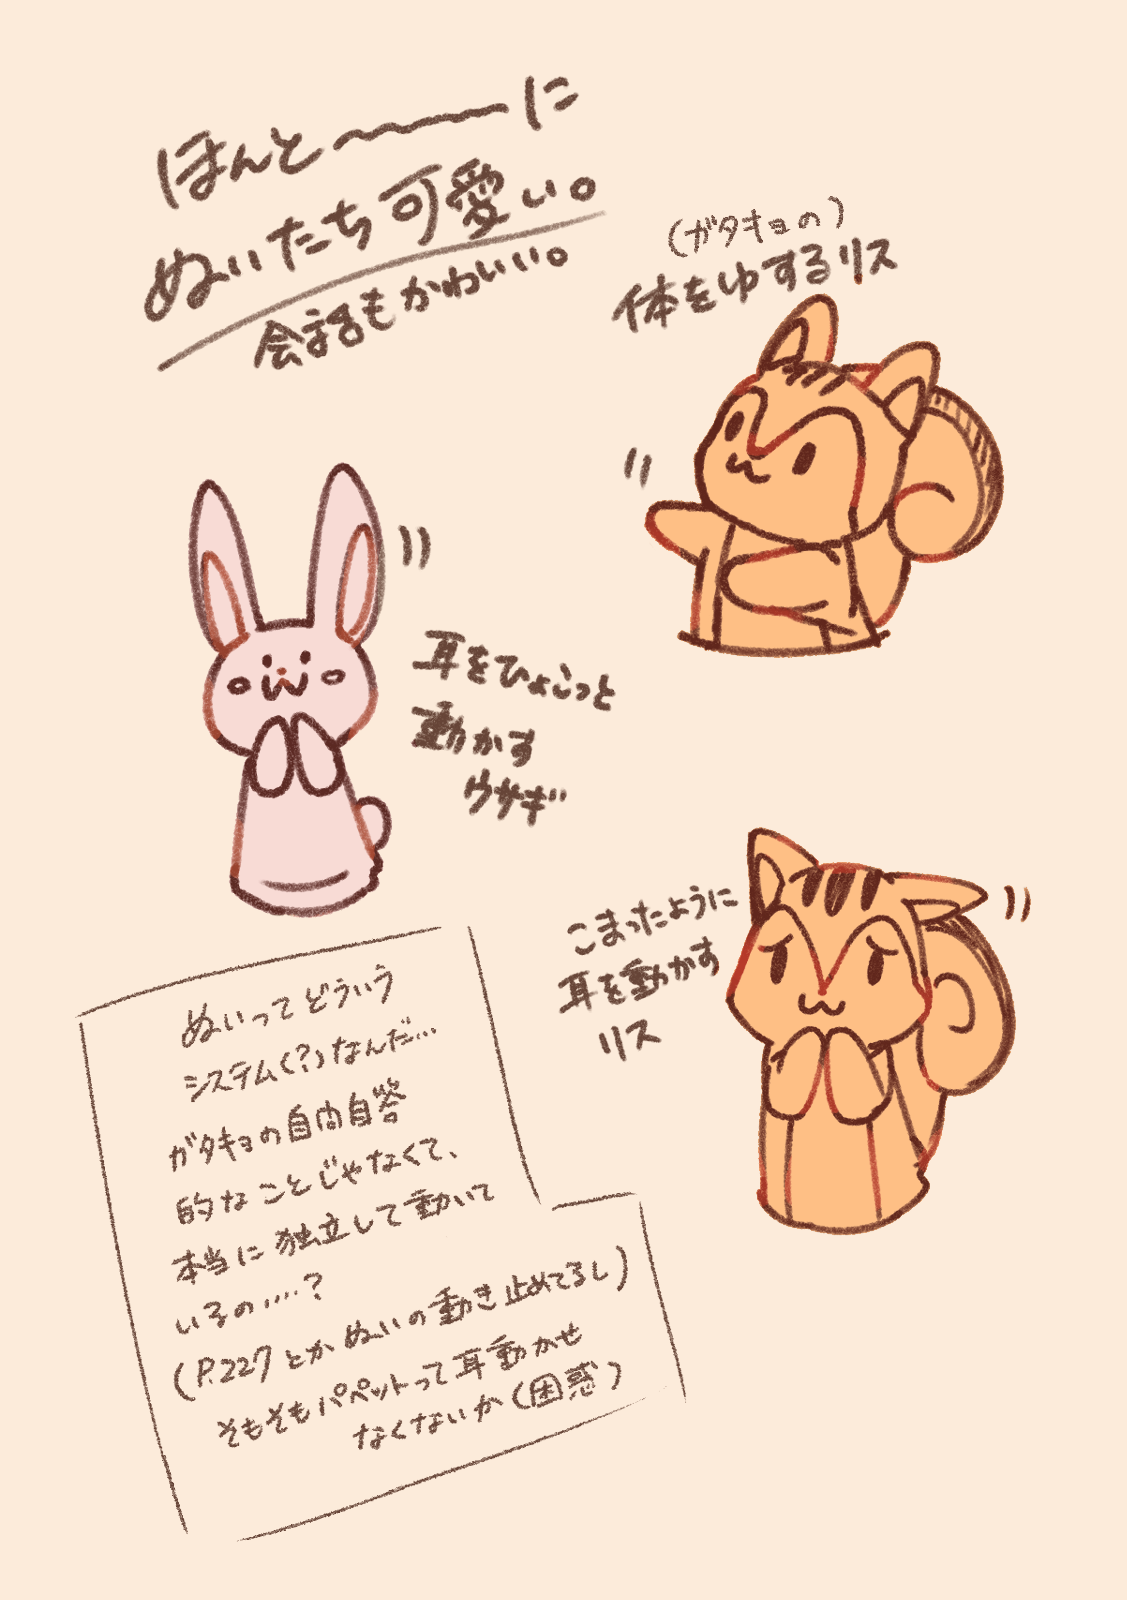 ほんと〜〜〜に
ぬいたち可愛い。
会話もかわいい。
(ガタキョの)
体をゆするリス
耳をひょこっと
動かす
ウサギ
こまったように
耳を動かす
リス
ぬいってどういう
システム(?)なんだ…
ガタキョの自問自答
的なことじゃなくて、
本当に独立して動いて
いるの….?
(P.227とかぬいの動き止めてるし)
そもそもパペットって耳動かせ
なくないか(困惑)